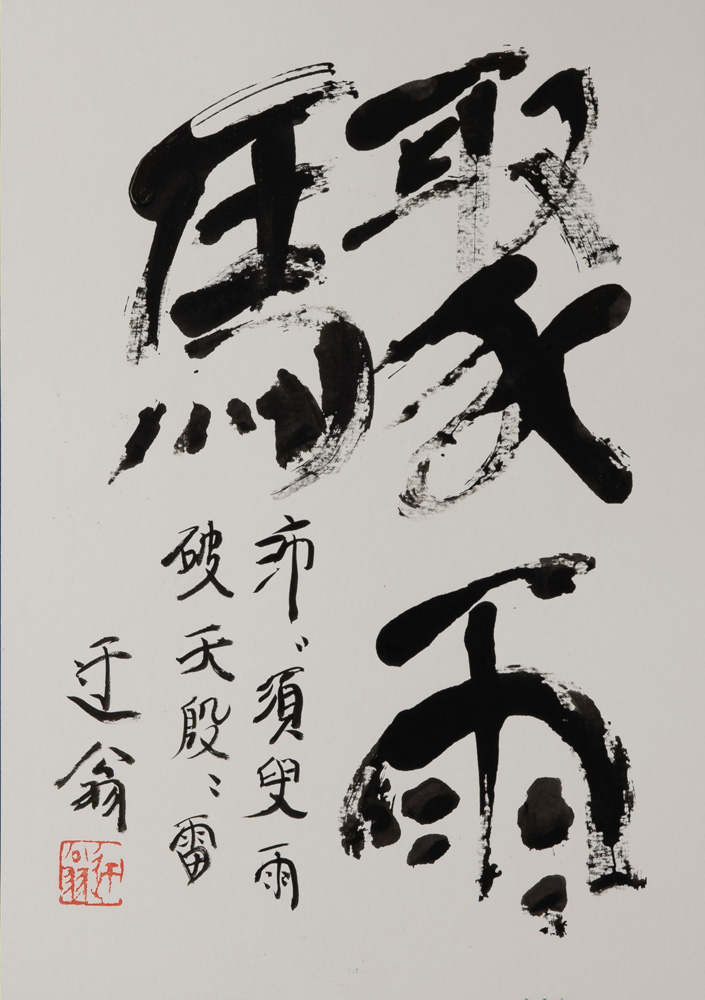 驟雨
沛〻須臾雨
破天殷〻雷
迂翁
迂翁